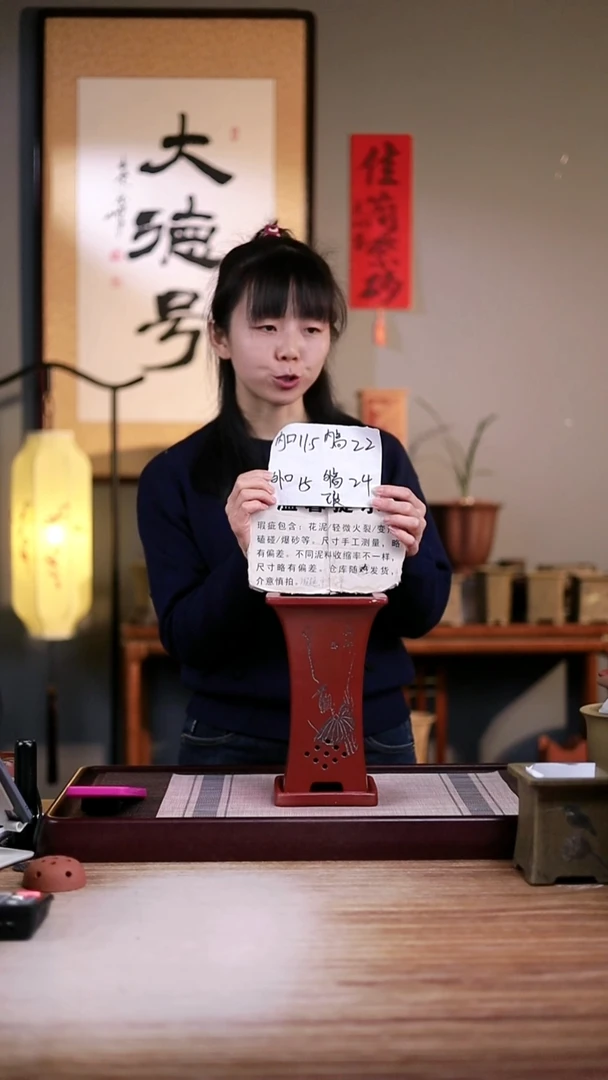 大
德
号
佳
尚
紫
砂
内口11.5 内高22
外口15 外高24
瑕疵包含：花泥/轻微火裂/变
磕碰/爆砂等。尺寸手工测量，略
有偏差。不同泥料收缩率不一样，
尺寸略有偏差。仓库随机发货，
介意慎拍。